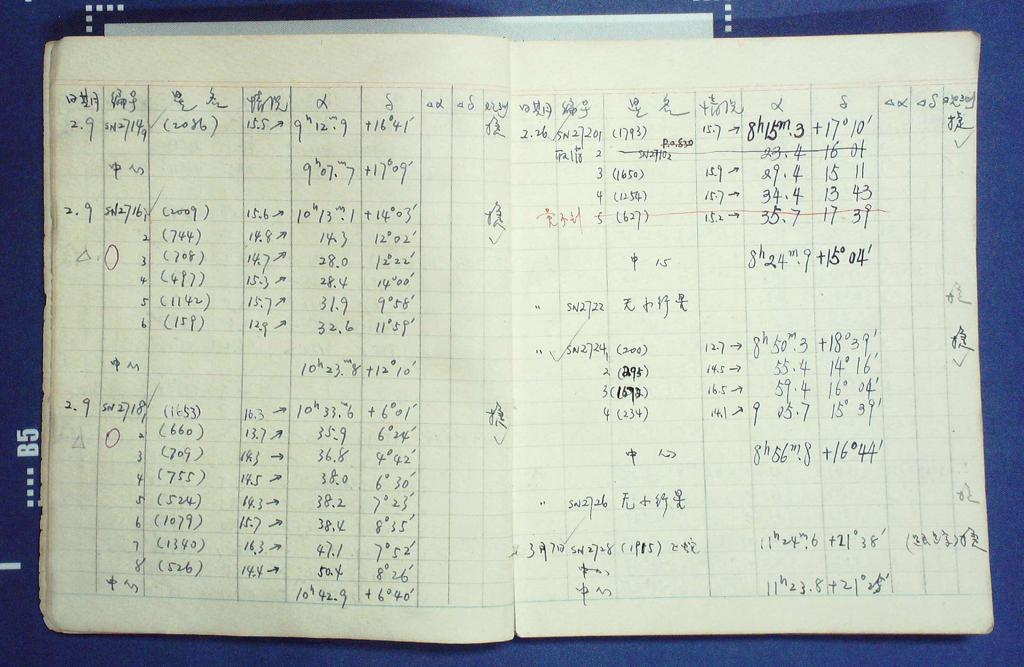 日期 编号 星名 情况 α δ Δα Δδ
2.9 SN2714 (2086) 15.5↗ 9h12m.9 +16°41'
中心 9h07m.7 +17°09'
2.9 SN2716 (2009) 15.6↗ 10h13m.1 +14°03'
2 (744) 14.8↗ 14.3 12°02'
3 (708) 14.7↗ 28.0 12°22'
4 (497) 15.3↗ 28.4 14°00'
5 (1142) 15.7↗ 31.9 9°58'
6 (159) 12.9↗ 32.6 11°59'
中心 10h23m.8 +12°10'
2.9 SN2718 (1653) 16.3→ 10h33m.6 +6°01'
2 (660) 13.7↗ 35.9 6°24'
3 (709) 14.3→ 36.8 4°42'
4 (755) 14.5↗ 38.0 6°30'
5 (524) 14.3→ 38.2 7°23'
6 (1079) 15.7↗ 38.4 8°35'
7 (1340) 16.3→ 47.1 7°52'
8 (526) 14.4→ 50.4 8°26'
中心 10h42.9 +6°40'
日期 编号 星名 情况 α δ Δα Δδ
2.26 SN27201 (1793) 15.7→ 8h15m.3 +17°10'
2 SN27102 23.4 16 01
3 (1650) 15.9→ 29.4 15 11
4 (1254) 15.7→ 34.4 13 43
5 (627) 15.2→ 35.7 17 39
中心 8h24m.9 +15°04'
" SN2722 无小行星
" SN2724 (200) 12.7→ 8h50m.3 +18°39'
2 (295) 14.5→ 55.4 14°16'
3 (1692) 16.5→ 59.4 16°04'
4 (234) 14.1→ 9 05.7 15°39'
中心 8h56m.8 +16°44'
" SN2726 无小行星
3月7日 SN2728 (1985) 11h24m.6 +21°38'
中心
中心 11h23.8 +21°25'
B5